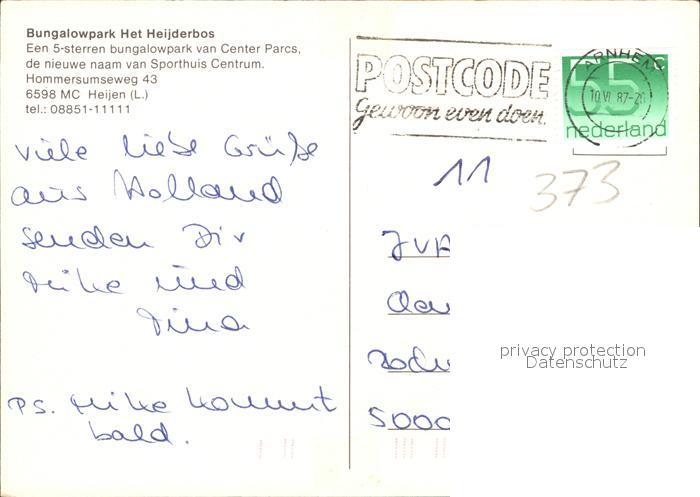 Bungalowpark Het Heijderbos
Een 5-sterren bungalowpark van Center Parcs,
de nieuwe naam van Sporthuis Centrum.
Hommersumseweg 43
6598 MC Heijen (L.)
tel.: 08851-11111
viele liebe Grüße
aus Holland
senden Dir
Heike und
Dina
PS. Heike kommt
bald.
POSTCODE
Gewoon even doen.
ARNHEM C
10.VI.87-20
55
nederland
11
373
JVA
5000
privacy protection
Datenschutz